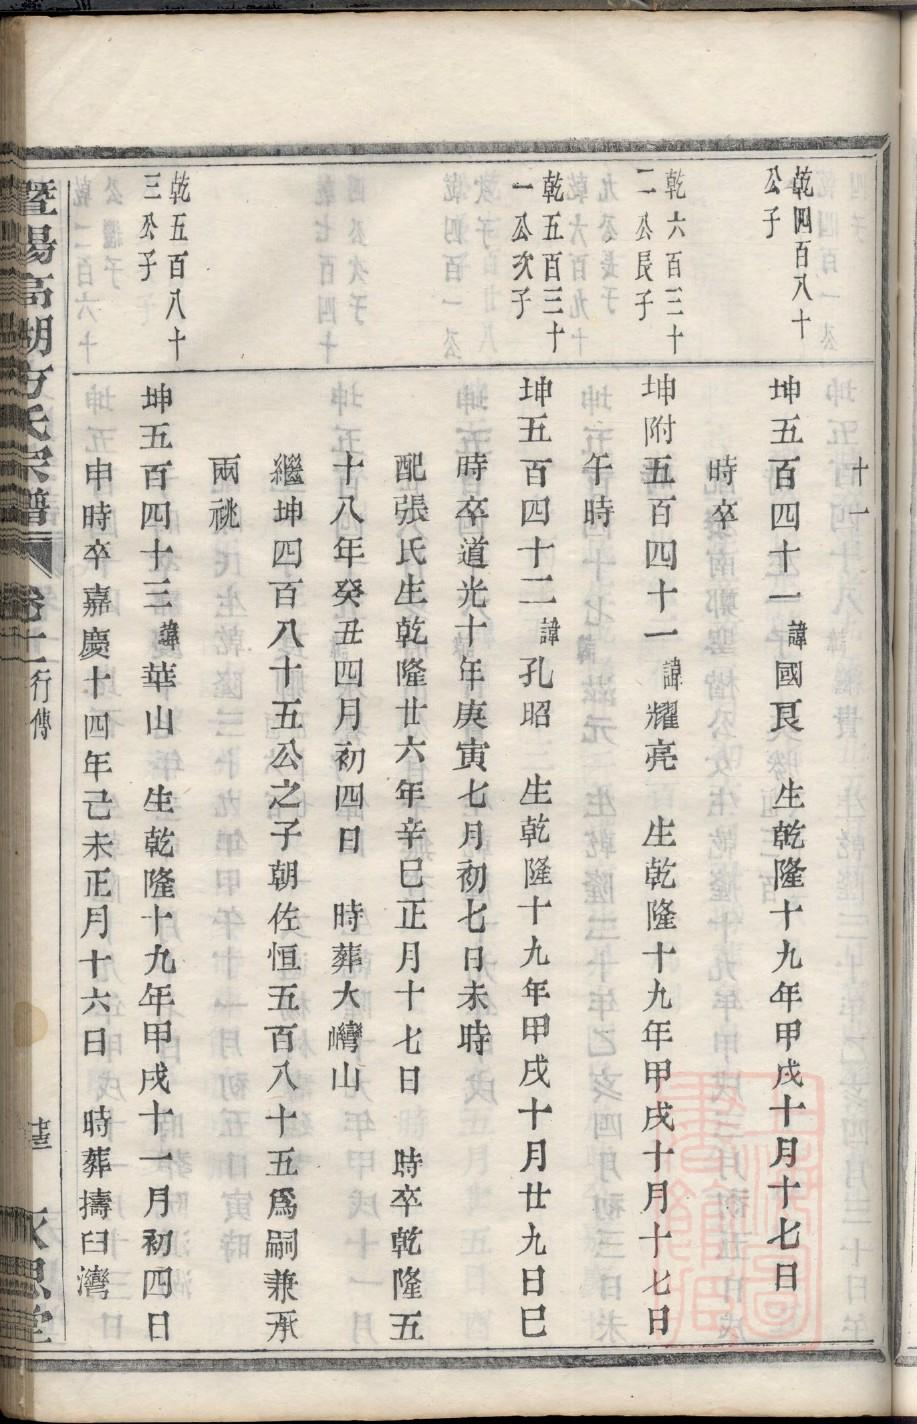 十一
乾四百八十
公子
坤五百四十一諱國艮 生乾隆十九年甲戌十月十七日
時卒
乾六百三十
二公長子
坤附五百四十一諱耀亮 生乾隆十九年甲戌十月十七日
午時
乾五百三十
一公次子
坤五百四十二諱孔昭 生乾隆十九年甲戌十月廿九日巳
時卒道光十年庚寅七月初七日未時
配張氏生乾隆廿六年辛巳正月十七日 時卒乾隆五
十八年癸丑四月初四日 時葬大灣山
繼坤四百八十五公之子朝佐恒五百八十五爲嗣兼承
兩祧
乾五百八十
三公子
坤五百四十三諱華山 生乾隆十九年甲戌十一月初四日
申時卒嘉慶十四年己未正月十六日 時葬擣臼灣
暨陽高湖方氏宗譜 卷十一 行傳